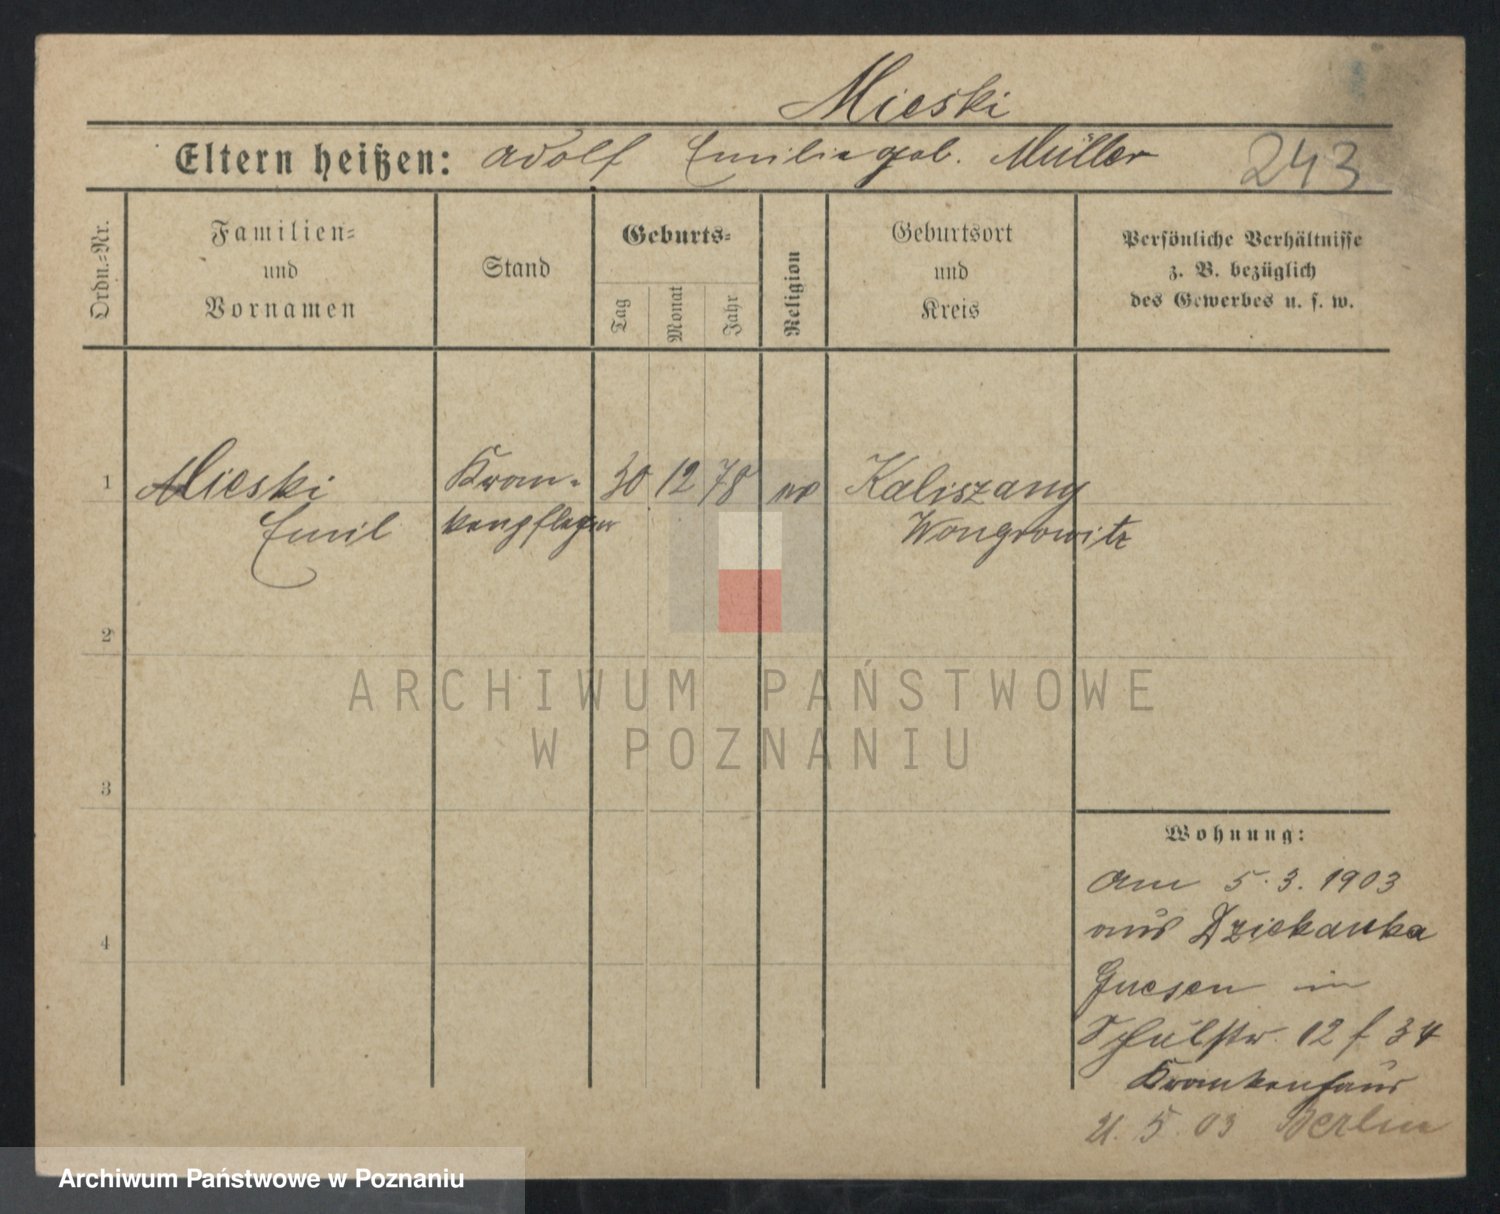 Mieski
Eltern heißen: Adolf Emilie geb. Müller 243
Ordn.-Nr.
Familien-
und
Vornamen
Stand
Geburts-
Tag
Monat
Jahr
Religion
Geburtsort
und
Kreis
Persönliche Verhältnisse
z. B. bezüglich
des Gewerbes u. s. w.
1 Mieski Kran- 30 12 78 Kaliszany
Emil kenpfleger Wongrowitz
2
ARCHIWUM PAŃSTWOWE
W POZNANIU
3
Wohnung:
am 5.3. 1903
aus Dziekanka
4
Gnesen in
Schulstr. 12 f 34
Krankenhaus
21. 5. 03 Berlin
Archiwum Państwowe w Poznaniu